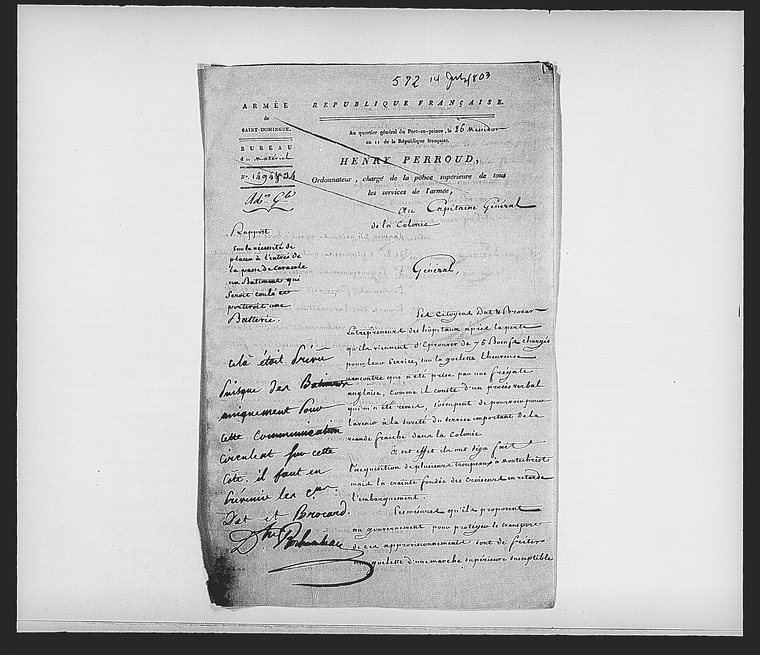 572 14 July 1803
ARMÉE
de
SAINT-DOMINGUE.
BUREAU
du matériel
N.º
RÉPUBLIQUE FRANÇAISE.
Au quartier général du Port-au-prince, le 26 Messidor
an 11 de la République française.
HENRY PERROUD,
Ordonnateur, chargé de la police supérieure de tous
les services de l'armée,
Au Capitaine Général
de la Colonie
Rapport
Sur la nécessité de
placer à l'entrée de
la passe de Caracole
un Batiment qui
seroit coulé et
porteroit une
Batterie.
Général,
Les citoyens Dat & Brocard
Entrepreneurs des hôpitaux après la perte
qu'ils viennent d'Eprouver de 75 Boeufs chargés
pour leur service, sur la goelette l'heureuse
rencontre qui a été prise par une frégate
anglaise, comme il conste d'un procès verbal
qui m'a été remis, s'occupent de pourvoir pour
l'avenir à la sureté du service important de la
viande fraiche dans la Colonie
A cet effet ils ont déjà fait
l'acquisition de plusieurs troupeaux à Montechrist
mais la crainte fondée des croiseurs en retarde
l'embarquement.
Les mesures qu'ils proposent
au gouvernement pour protéger le transport
de ces approvisionnements sont de fréter
une goelette d'une marche supérieure susceptible
cela était prévu
puisque des Batimens
uniquement pour
cette communication
circulent sur cette
côte. il faut en
prévenir les c.ens
Dat et Brocard.